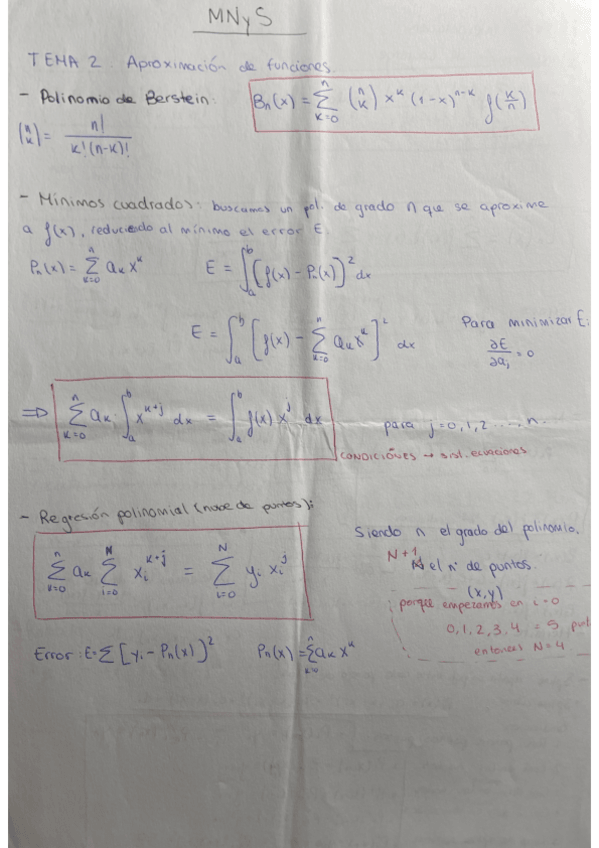 MNyS
TEMA 2 Aproximación de funciones.
- Polinomio de Berstein: Bₙ(x) = ∑_{k=0}^{n} (n k) x^k (1-x)^{n-k} f(k/n)
(n k) = n! / k!(n-k)!
- Mínimos cuadrados: buscamos un pol. de grado n que se aproxime
a f(x), reduciendo al mínimo el error E.
Pₙ(x) = ∑_{k=0}^{n} a_k x^k E = ∫_a^b [f(x) - Pₙ(x)]² dx
E = ∫_a^b [f(x) - ∑_{k=0}^{n} a_k x^k]² dx Para minimizar E:
∂E/∂a_j = 0
⇒ ∑_{k=0}^{n} a_k ∫_a^b x^{k+j} dx = ∫_a^b f(x) x^j dx para j=0,1,2 ...., n.
CONDICIONES → sist. ecuaciones
- Regresión polinomial (nube de puntos):
Siendo n el grado del polinomio.
∑_{k=0}^{n} a_k ∑_{i=0}^{N} x_i^{k+j} = ∑_{i=0}^{N} y_i x_i^j
N+1 el nº de puntos.
(x,y)
porque empezamos en i=0
0,1,2,3,4 = 5
entonces N=4
Error: E=∑[y_i - Pₙ(x)]² Pₙ(x) = ∑_{k=0}^{n} a_k x^k